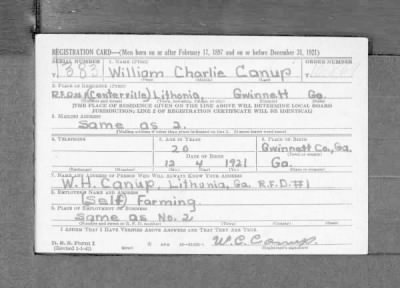 REGISTRATION CARD—(Men born on or after February 17, 1897 and on or before December 31, 1921)
SERIAL NUMBER 1. NAME (Print) ORDER NUMBER
T 383 William Charlie Canup
(First) (Middle) (Last)
2. PLACE OF RESIDENCE (Print)
R.F.D. #1 (Centerville) Lithonia, Gwinnett Ga.
(Number and street) (Town, township, village, or city) (County) (State)
[THE PLACE OF RESIDENCE GIVEN ON THE LINE ABOVE WILL DETERMINE LOCAL BOARD
JURISDICTION; LINE 2 OF REGISTRATION CERTIFICATE WILL BE IDENTICAL]
3. MAILING ADDRESS
Same as 2.
[Mailing address if other than place indicated on line 2. If same insert word same]
4. TELEPHONE 5. AGE IN YEARS 6. PLACE OF BIRTH
20 Gwinnett Co, Ga.
DATE OF BIRTH (Town or county)
12 4 1921 Ga.
7. NAME AND ADDRESS OF PERSON WHO WILL ALWAYS KNOW YOUR ADDRESS
W.H. Canup, Lithonia, Ga. R.F.D. #1
8. EMPLOYER'S NAME AND ADDRESS
(Self) Farming.
9. PLACE OF EMPLOYMENT OR BUSINESS
Same as No. 2
(Number and street or R. F. D. number) (Town) (County) (State)
I AFFIRM THAT I HAVE VERIFIED ABOVE ANSWERS AND THAT THEY ARE TRUE.
D. S. S. FORM 1
(Revised 1-1-42) W.C. Canup.
(Registrant's signature)